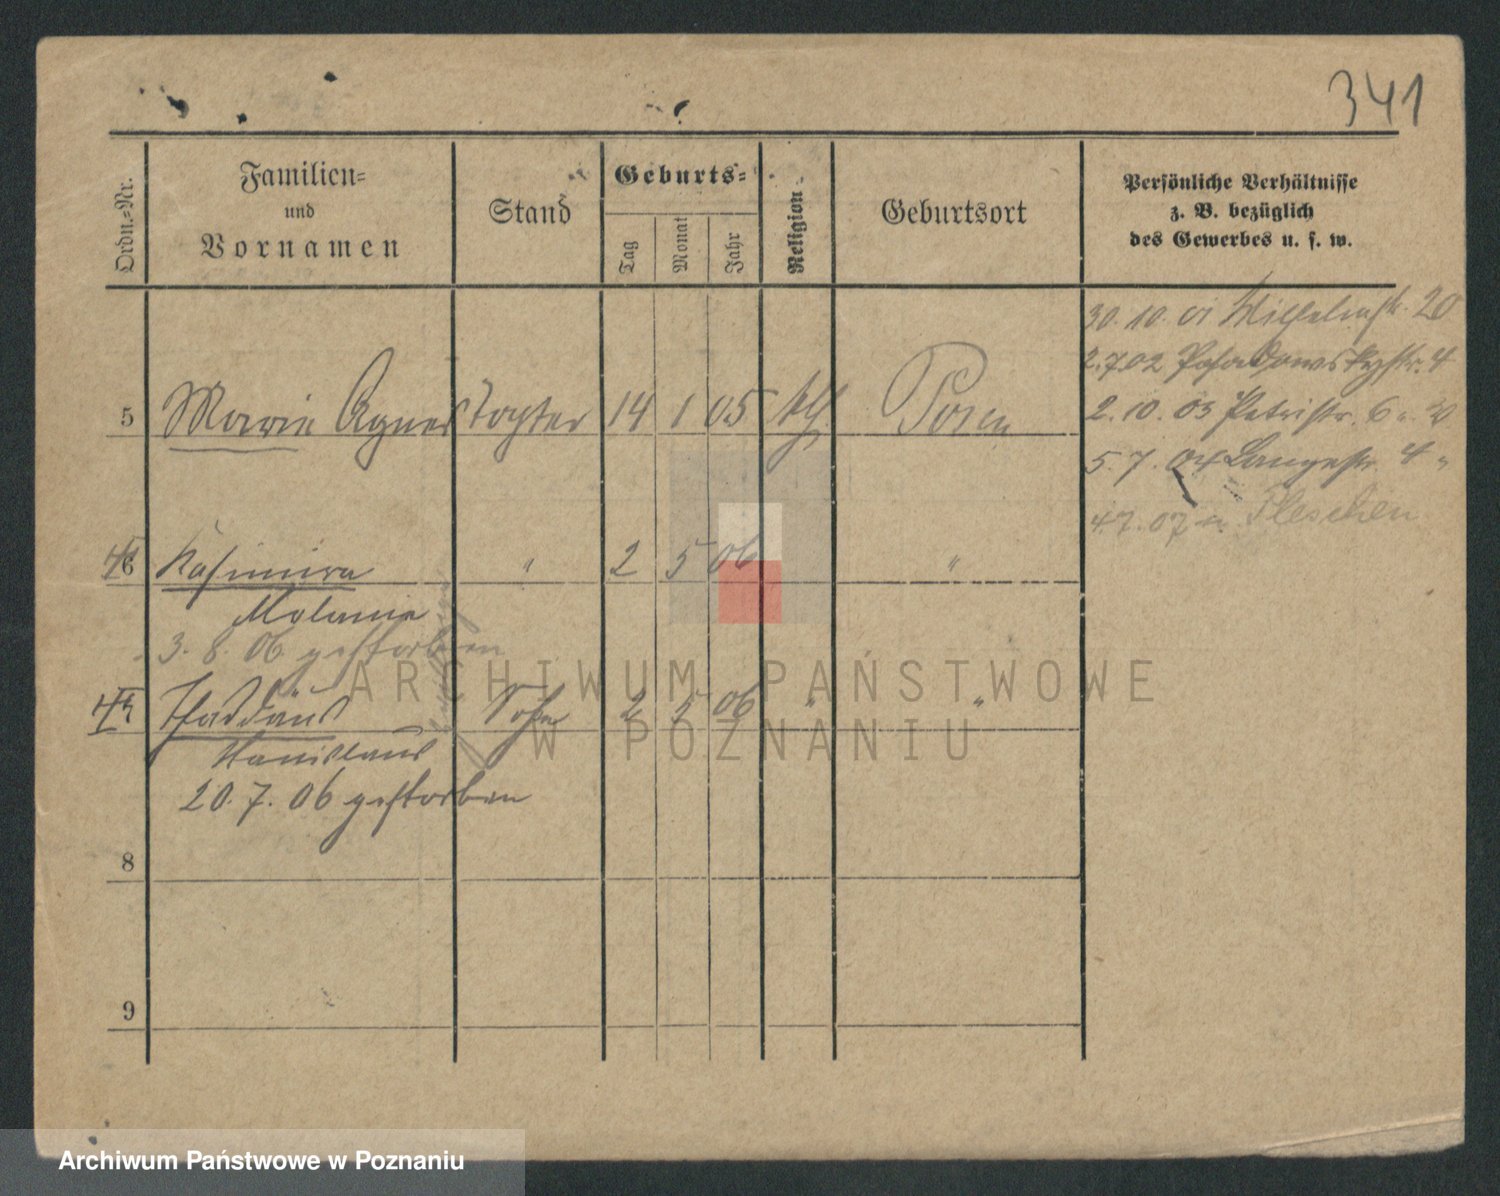 341
Ordn.-Nr.
Familien-
und
Vornamen
Stand
Geburts-
Tag
Monat
Jahr
Religion
Geburtsort
Persönliche Verhältnisse
z. B. bezüglich
des Gewerbes u. s. w.
30. 10. 01 Wilhelmstr. 20
2.7.02 Posadowskystr. 4
2. 10. 03 Petristr. 6
5. 7. 04 Langestr. 4 "
4.7.07 n. Pleschen
5 Marie Agnes Tochter 14 1 05 kth. Posen
6 Kasimira " 2 5 06 "
Melanie
3. 8. 06 gestorben
Thaddäus Sohn 2 5 06 " "
Stanislaus
20. 7. 06 gestorben
8
9
ARCHIWUM PAŃSTWOWE
W POZNANIU
Archiwum Państwowe w Poznaniu